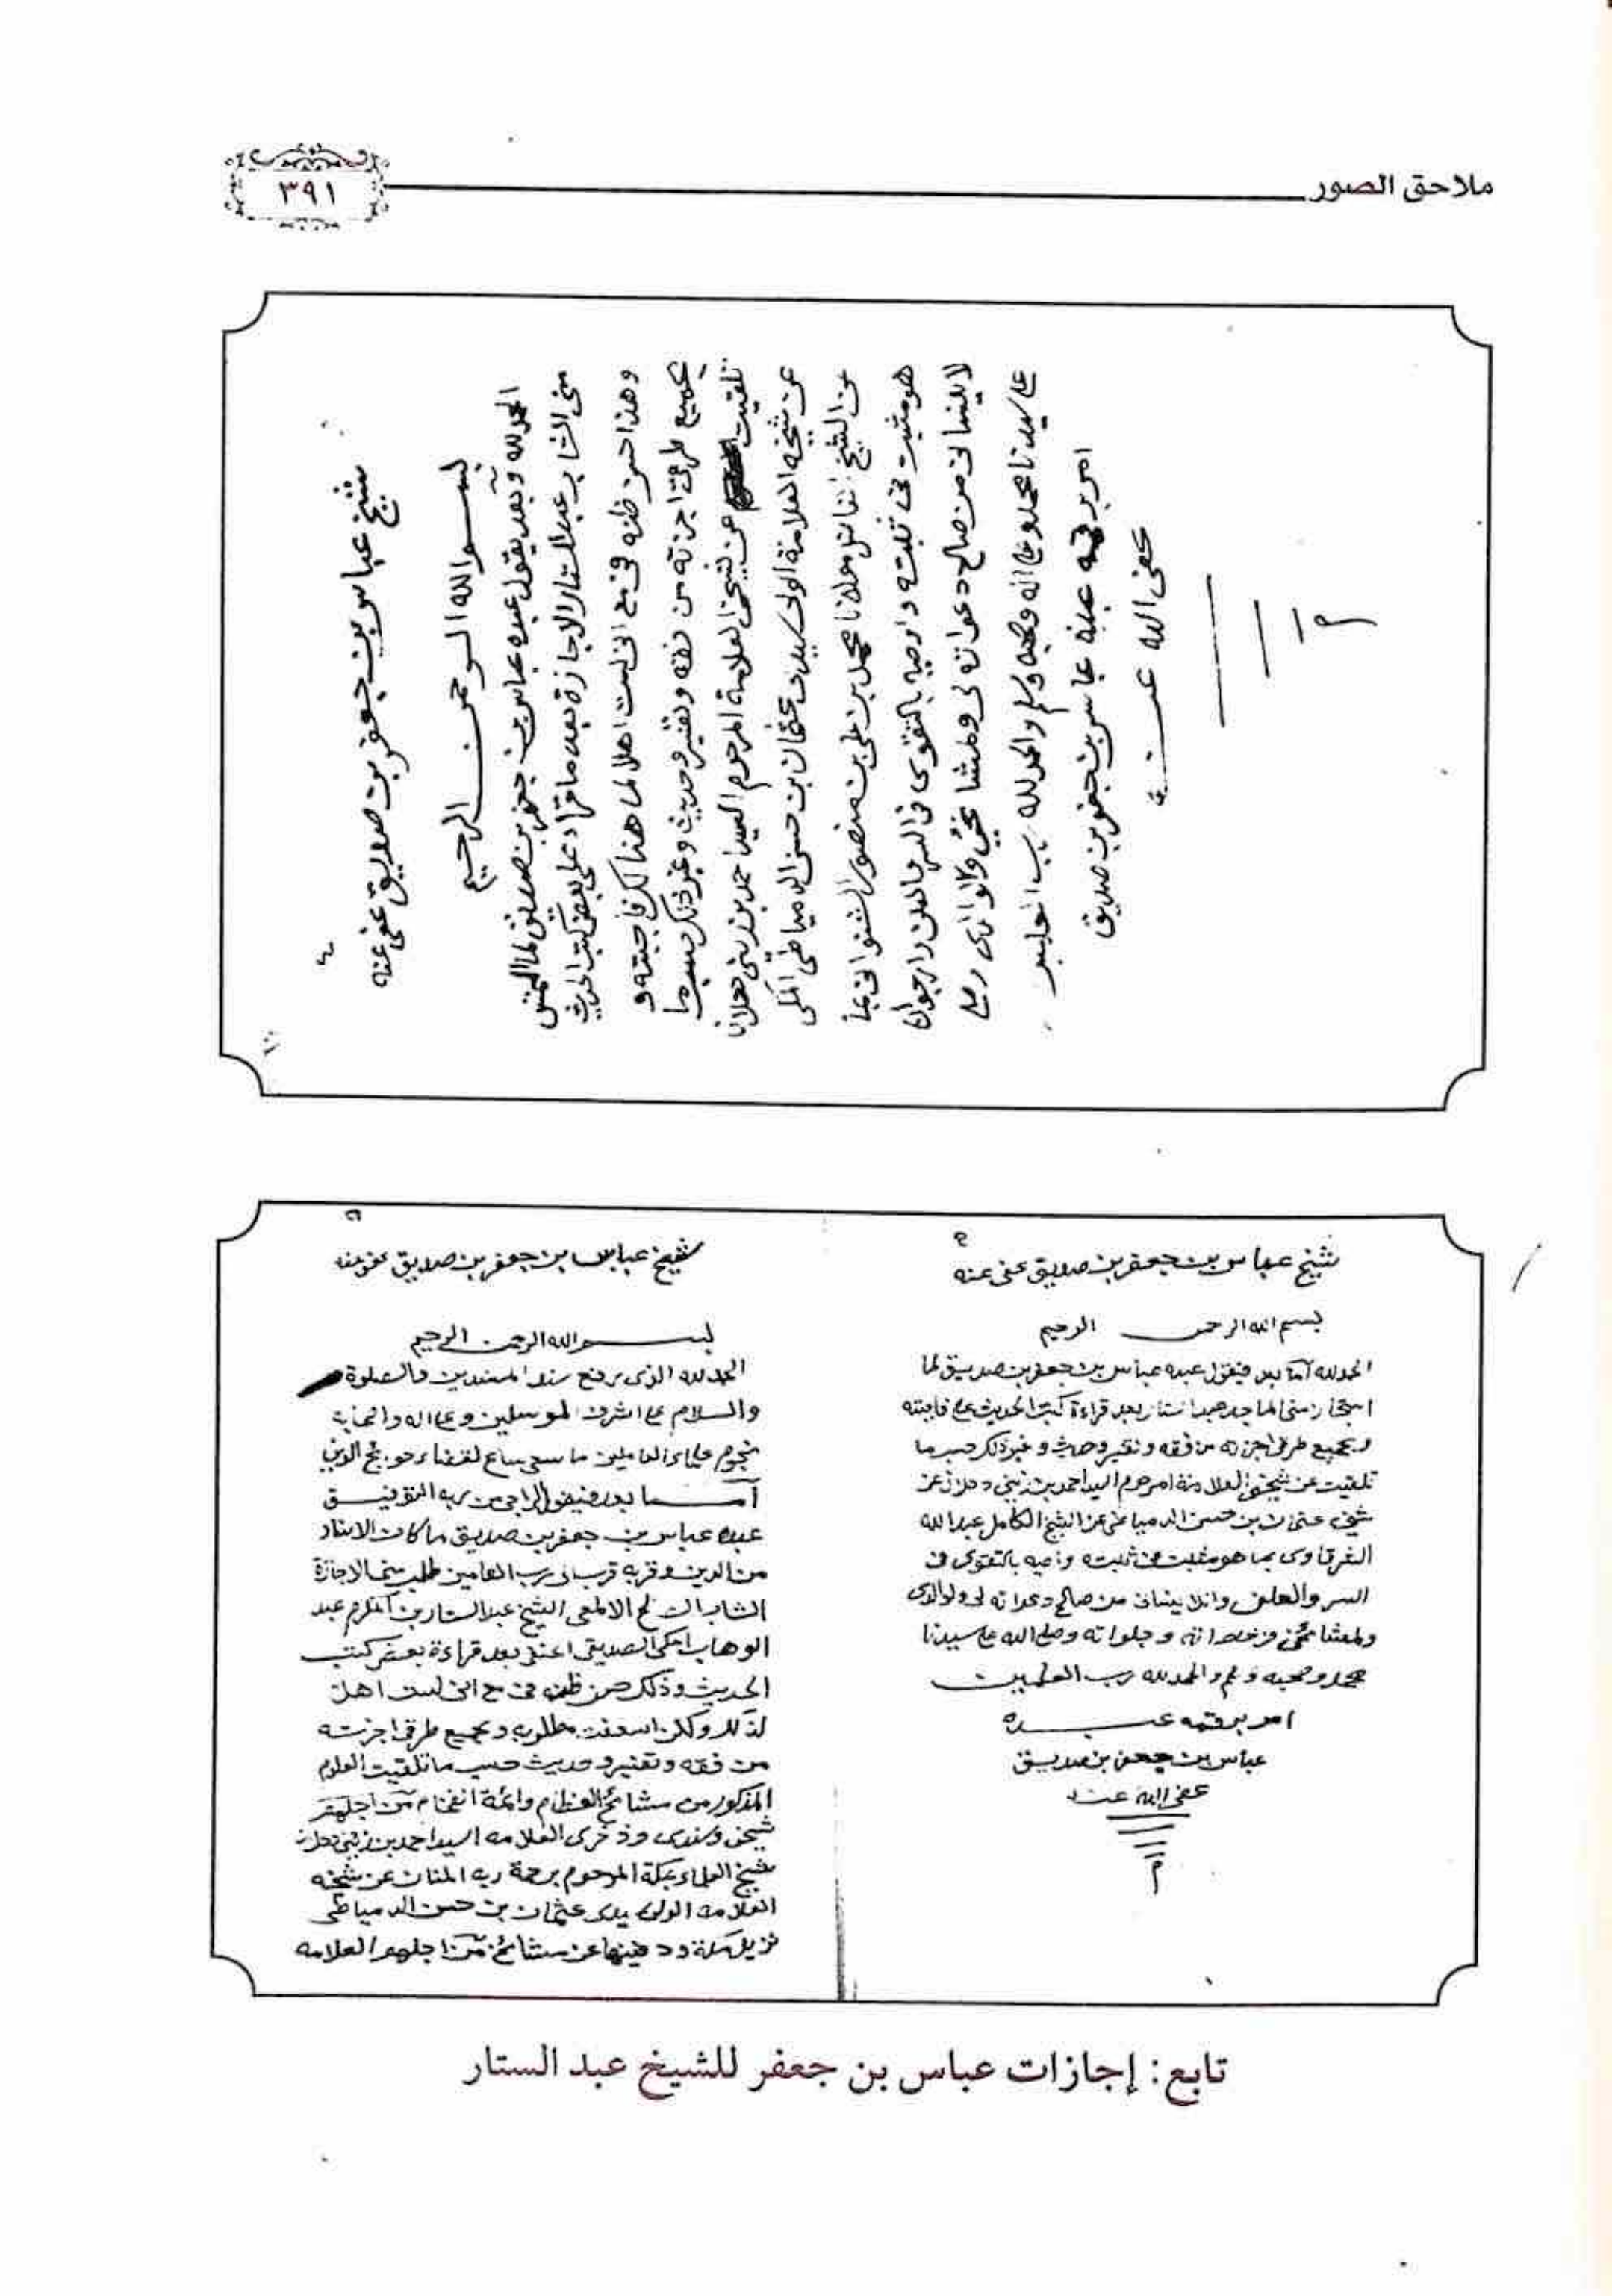 ملاحق الصور
٣٩١
٤
شيخ عباس بن جعفر بن صديق عفى عنه
بسم الله الرحمن الرحيم
الحمد لله وبعد يقول عبده عباس بن جعفر بن صديق لما التمس
منى الشاب عبد الستار الاجازة بعد ما قرأ على بعض كتب الحديث
وهذا حسن ظنه فى مع انى لست اهلا لما هنالك فاجبته و
بجميع طرقى اجزته من فقه وتفسير وحديث وغير ذلك حسبما
تلقيت عن شيخى العلامة المرحوم السيد احمد بن زينى دحلان
عن شيخه العلامة الولى سيدى عثمان بن حسن الدمياطى المكى
عن الشيخ مولانا محمد بن على بن منصور الشنوانى بما
هو مثبت فى ثبته واوصيه بالتقوى فى السر والعلن راجيا ان
لا ينسانى من صالح دعواته لى ولمشائخى ولوالدى وصلى
على سيدنا محمد وعلى اله وصحبه وسلم والحمد لله رب العلمين
امر برقمه عبده عباس بن جعفر بن صديق
عفى الله عنه
٥
شيخ عباس بن جعفر بن صديق عفى عنه
بسم الله الرحمن الرحيم
الحمد لله اما بعد فيقول عبده عباس بن جعفر بن صديق لما
استجاز منى الماجد عبد الستار بعد قراءة كتب الحديث على فاجبته
وبجميع طرقى اجزته من فقه وتفسير وحديث وغير ذلك حسب ما
تلقيت عن شيخى العلامة المرحوم السيد احمد بن زينى دحلان عن
شيخه عثمان بن حسن الدمياطى عن الشيخ الكامل عبد الله
الشرقاوى بما هو مثبت فى ثبته واوصيه بالتقوى فى
السر والعلن وان لا ينسانى من صالح دعواته لى ولوالدى
ولمشائخى فى خلواته وجلواته وصلى الله على سيدنا
محمد وصحبه وسلم والحمد لله رب العلمين
امر برقمه عبده
عباس بن جعفر بن صديق
عفى الله عنه
٥
شيخ عباس بن جعفر بن صديق عفى عنه
بسم الله الرحمن الرحيم
الحمد لله الذى رفع سند المسندين والصلوة
والسلام على اشرف المرسلين وعلى اله واصحابه
نجوم العاملين ما سعى ساع لقضاء حوائج الدين
اما بعد فيقول الراجى من ربه التوفيق
عبده عباس بن جعفر بن صديق ما كان الاسناد
من الدين وقربه قرب الى رب العالمين طلب منى الاجازة
الشاب الالمعى الشيخ عبد الستار بن المكرم عبد
الوهاب المكى الصديقى اعنى بعد قراءة بعض كتب
الحديث وذلك حسن ظنه فى مع انى لست اهل
لذلك ولكن اسعفت مطلوبه وبجميع طرقى اجزته
من فقه وتفسير وحديث حسب ما تلقيت العلوم
المذكور من مشائخ العظام وائمة الفخام من اجلهم
شيخى وسندى وذخرى العلامه السيد احمد بن زينى دحلان
شيخ العلماء بمكة المرحوم برحمة ربه المنان عن شيخه
العلامه الولى سيدى عثمان بن حسن الدمياطى
نزيل مكة ودفينها عن مشائخ من اجلهم العلامه
تابع: إجازات عباس بن جعفر للشيخ عبد الستار